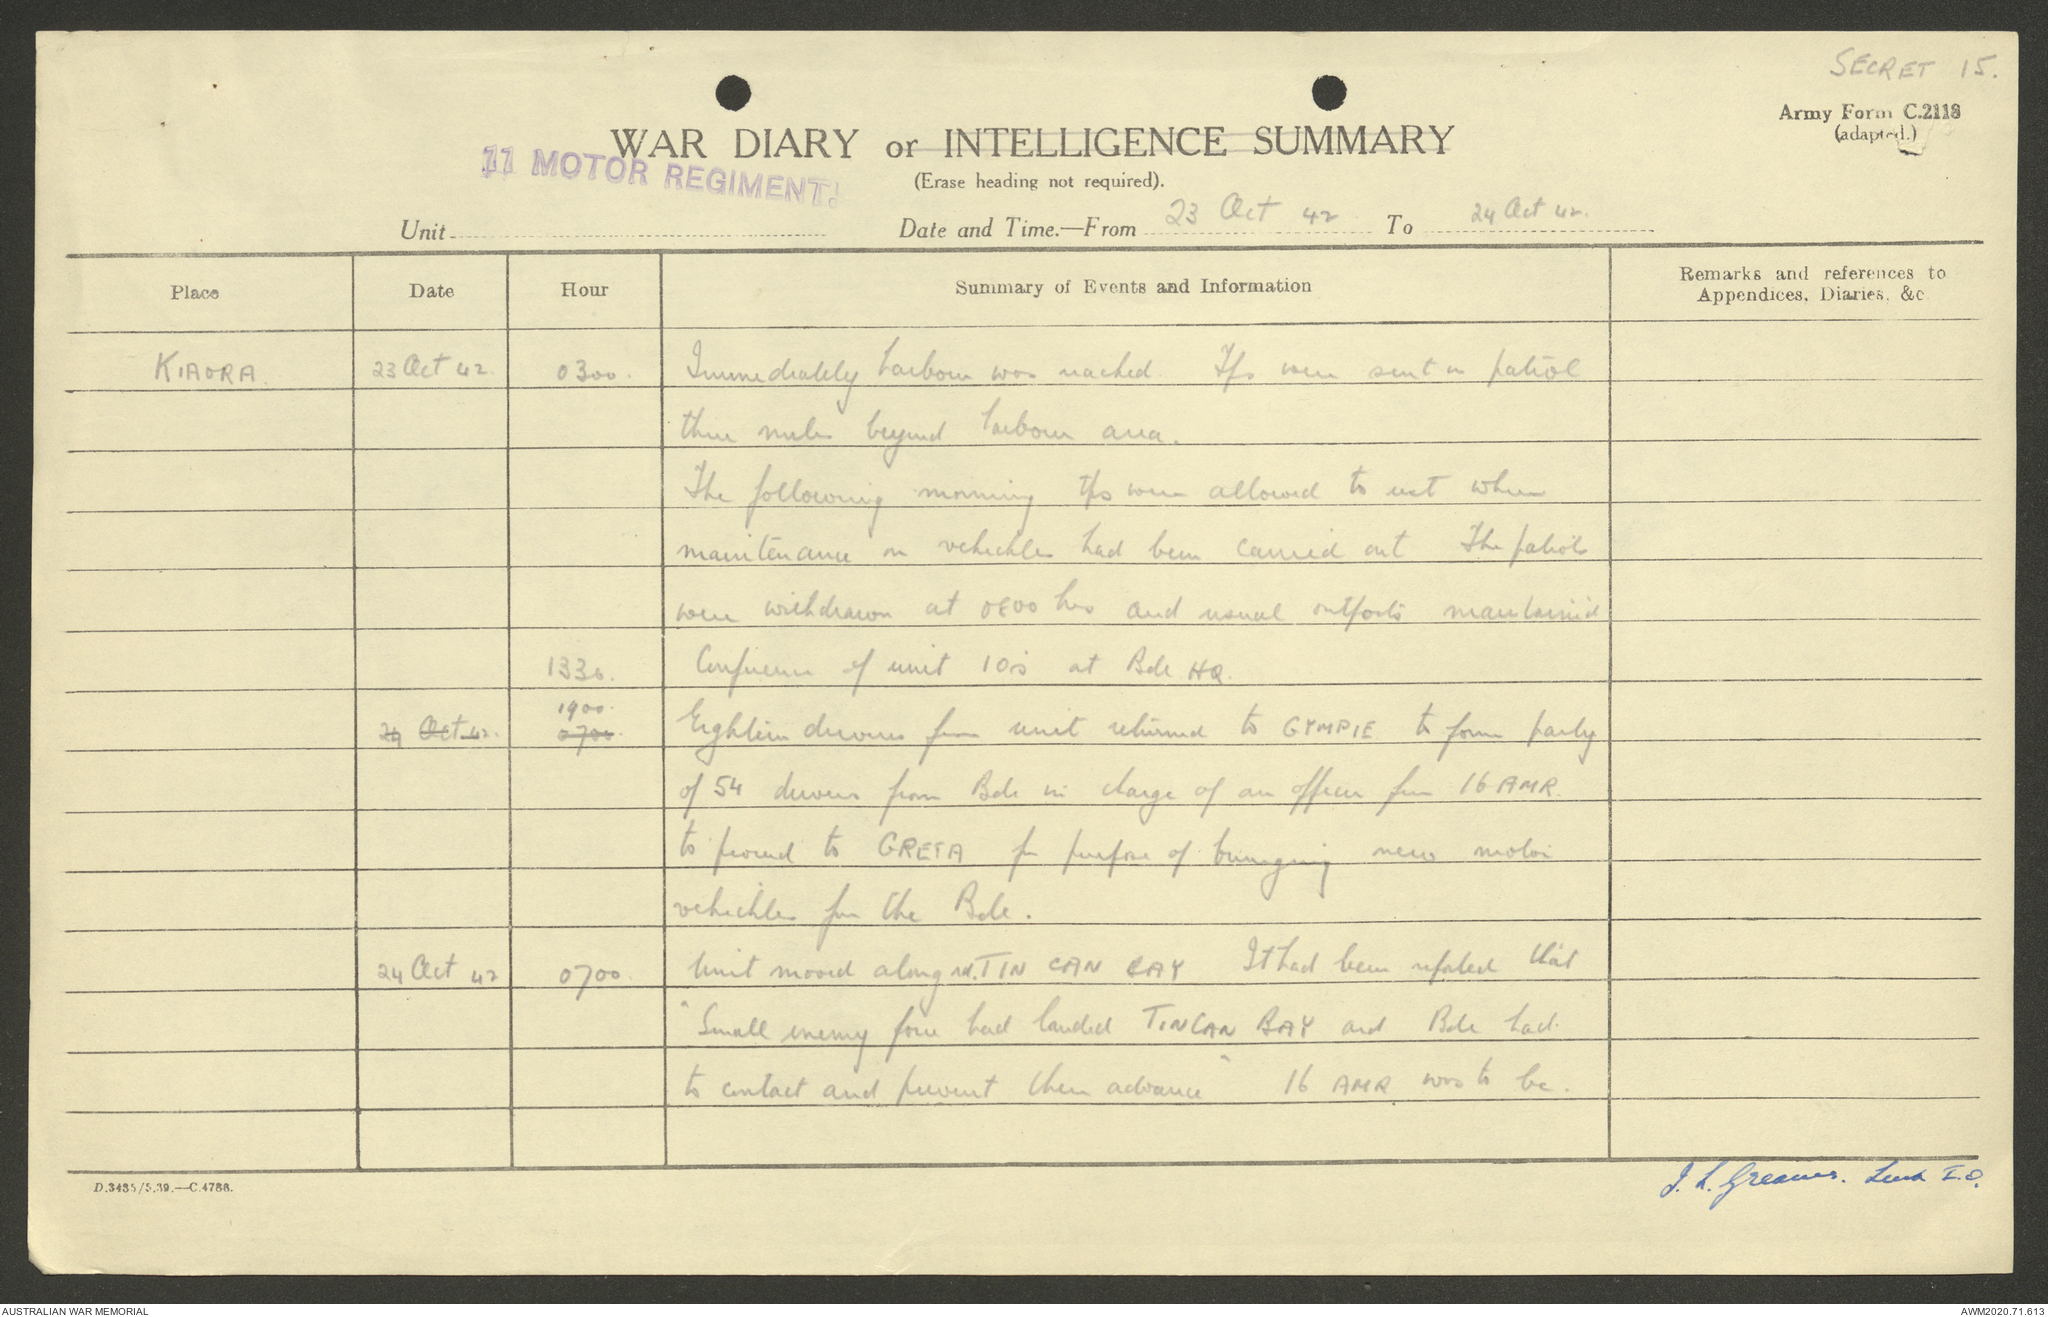 SECRET 15.
Army Form C.2118
(adapted.)
WAR DIARY or INTELLIGENCE SUMMARY
11 MOTOR REGIMENT.
(Erase heading not required).
Unit
Date and Time.—From 23 Oct 42 To 24 Oct 42.
Place Date Hour Summary of Events and Information Remarks and references to
Appendices, Diaries, &c.
KIAORA. 23 Oct 42. 0300. Immediately harbour was reached. Tps were sent on patrol
three miles beyond harbour area.
The following morning tps were allowed to rest when
maintenance on vehichles had been carried out The patrols
were withdrawn at 0800 hrs and usual outposts maintained
1330. Conference of unit IO's at Bde HQ.
1900.
24 Oct 42. 0700. Eighteen drivers from unit returned to GYMPIE to form party
of 54 drivers from Bde in charge of an officer from 16 AMR.
to proceed to GRETA for purpose of bringing new motor
vehichles for the Bde.
24 Oct 42 0700. Unit moved along rd. TIN CAN BAY It had been reported that
"Small enemy force had landed TINCAN BAY and Bde had
to contact and prevent their advance" 16 AMR was to be.
D.3435/5.39.—C.4786.
J. L. Greaves. Lieut I.O.
AUSTRALIAN WAR MEMORIAL
AWM2020.71.613